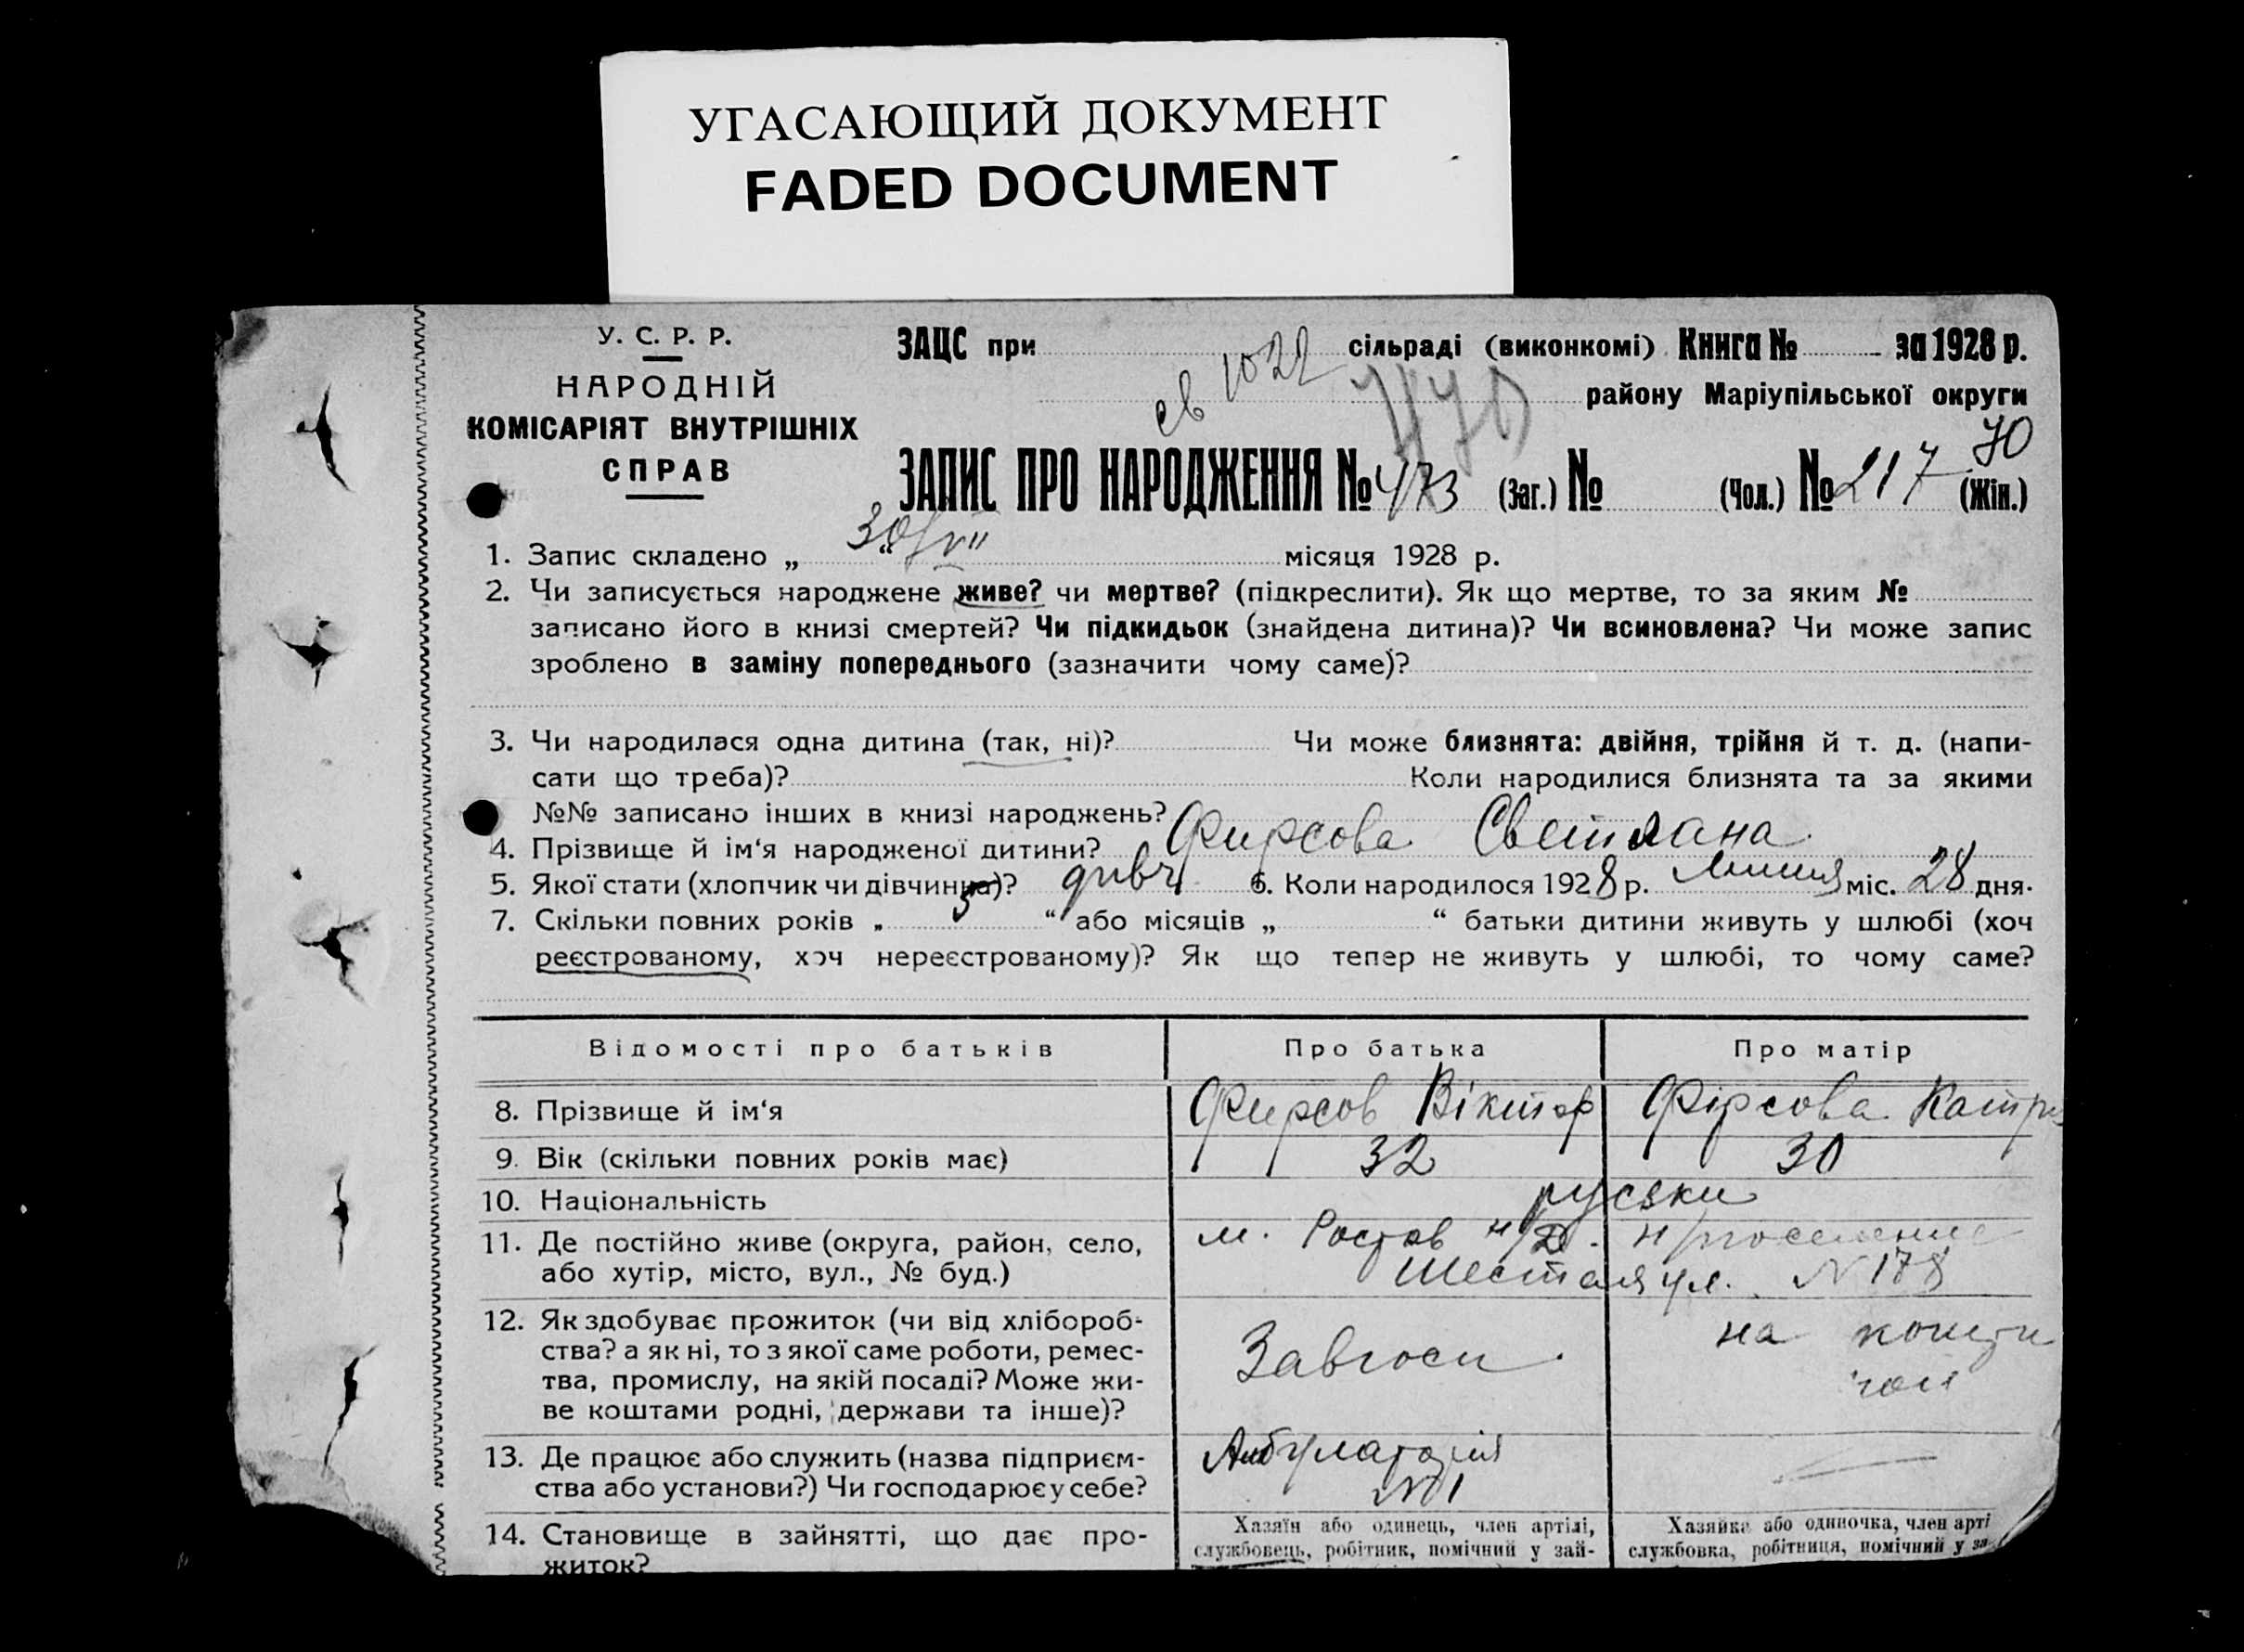 УГАСАЮЩИЙ ДОКУМЕНТ
FADED DOCUMENT
У. С. Р. Р.
НАРОДНІЙ
КОМІСАРІЯТ ВНУТРІШНІХ
СПРАВ
ЗАЦС при сільраді (виконкомі) Книга № за 1928 р.
св 1022
району Маріупільської округи
70
ЗАПИС ПРО НАРОДЖЕННЯ № 473 (Заг.) № (Чол.) № 217 (Жін.)
1. Запис складено „ 30/VII “ місяця 1928 р.
2. Чи записується народжене живе? чи мертве? (підкреслити). Як що мертве, то за яким №
записано його в книзі смертей? Чи підкидьок (знайдена дитина)? Чи всиновлена? Чи може запис
зроблено в заміну попереднього (зазначити чому саме)?
3. Чи народилася одна дитина (так, ні)? Чи може близнята: двійня, трійня й т. д. (напи-
сати що треба)? Коли народилися близнята та за якими
№№ записано інших в книзі народжень?
4. Прізвище й ім‘я народженої дитини? Фирсова Светлана
5. Якої стати (хлопчик чи дівчинка)? дивч 6. Коли народилося 1928 р. Липня міс. 28 дня.
7. Скільки повних років „ 5 “ або місяців „ “ батьки дитини живуть у шлюбі (хоч
реєстрованому, хоч нереєстрованому)? Як що тепер не живуть у шлюбі, то чому саме?
Відомості про батьків Про батька Про матір
8. Прізвище й ім‘я Фирсов Віктор Фірсова
9. Вік (скільки повних років має) 32 30
10. Національність руськи
11. Де постійно живе (округа, район, село, м. Ростов н/Д.
або хутір, місто, вул., № буд.) Шестая ул. N 178
12. Як здобуває прожиток (чи від хлібороб-
ства? а як ні, то з якої саме роботи, ремес-
тва, промислу, на якій посаді? Може жи-
ве коштами родні, держави та інше)?
Завгосп
на кошти
чол
13. Де працює або служить (назва підприєм- Амбулаторія
ства або установи?) Чи господарює у себе? N 1
14. Становище в зайнятті, що дає про-
житок?
Хазяїн або одинець, член артілі,
службовець, робітник, помічний у зай-
Хазяйка або одиночка, член арті
службовка, робітниця, помічний у за